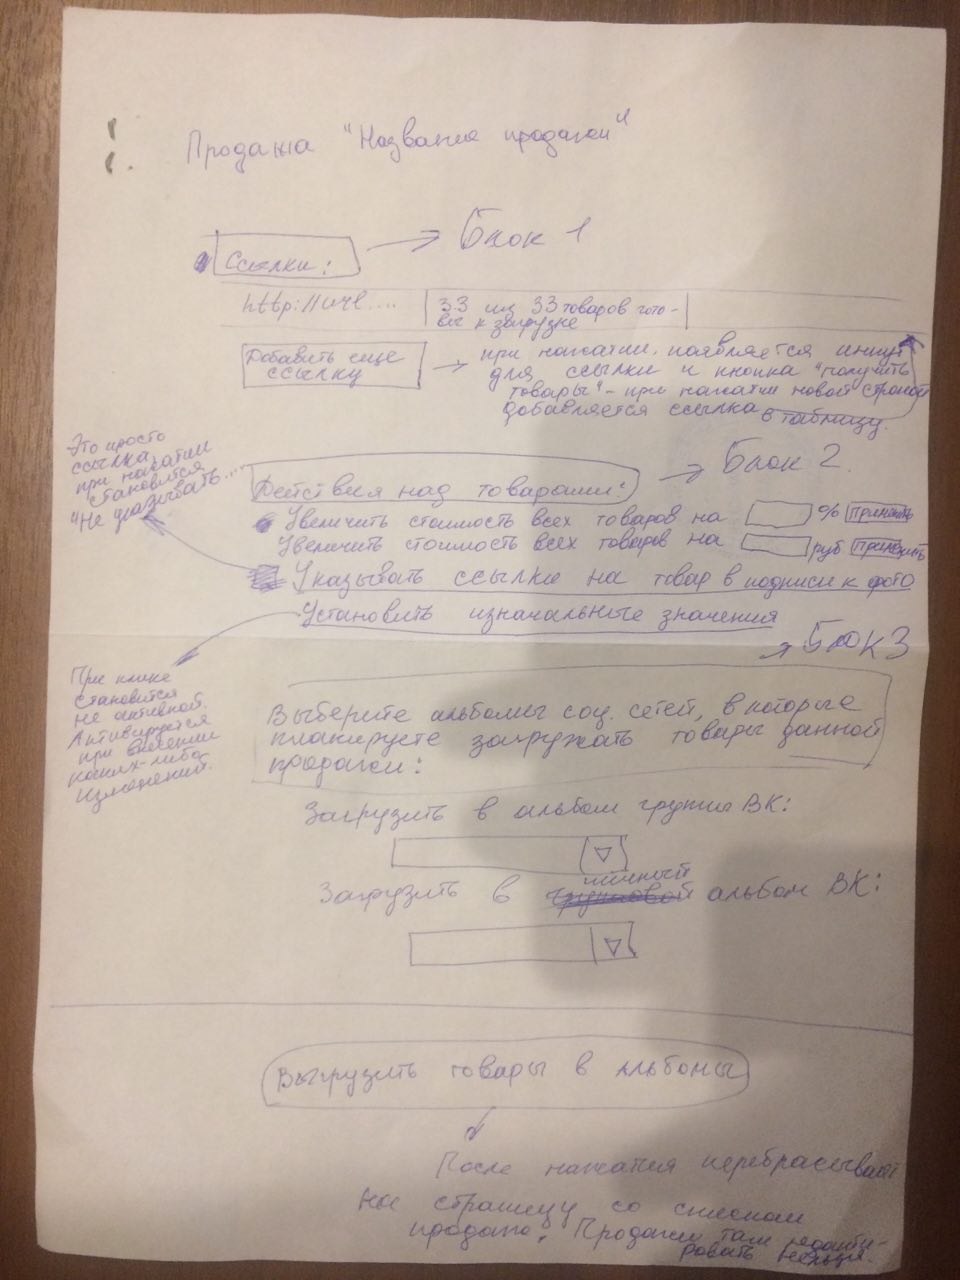 Продажа "Название продажи"
Блок 1
Ссылки:
http://url.... 33 из 33 товаров гото-
вы к загрузке
Добавить еще
ссылку
при нажатии появляется инпут
для ссылки и кнопка "получить
товары" - при нажатии новой строкой
добавляется ссылка в таблицу.
Это просто
ссылка,
при нажатии
становится
"Не указывать...
Блок 2.
Действия над товарами:
Увеличить стоимость всех товаров на % Применить
Увеличить стоимость всех товаров на руб Применить
Указывать ссылки на товар в подписи к фото
Установить изначальные значения
Блок 3
При клике
становится
не активной.
Активируется
при внесении
каких-либо
изменений.
Выберите альбомы соц. сетей, в которые
планируете загружать товары данной
продажи:
Загрузить в альбом группы ВК:
Загрузить в личный альбом ВК:
Выгрузить товары в альбомы
После нажатия перебрасывает
на страницу со списком
продаж. Продажи там редакти-
ровать нельзя.